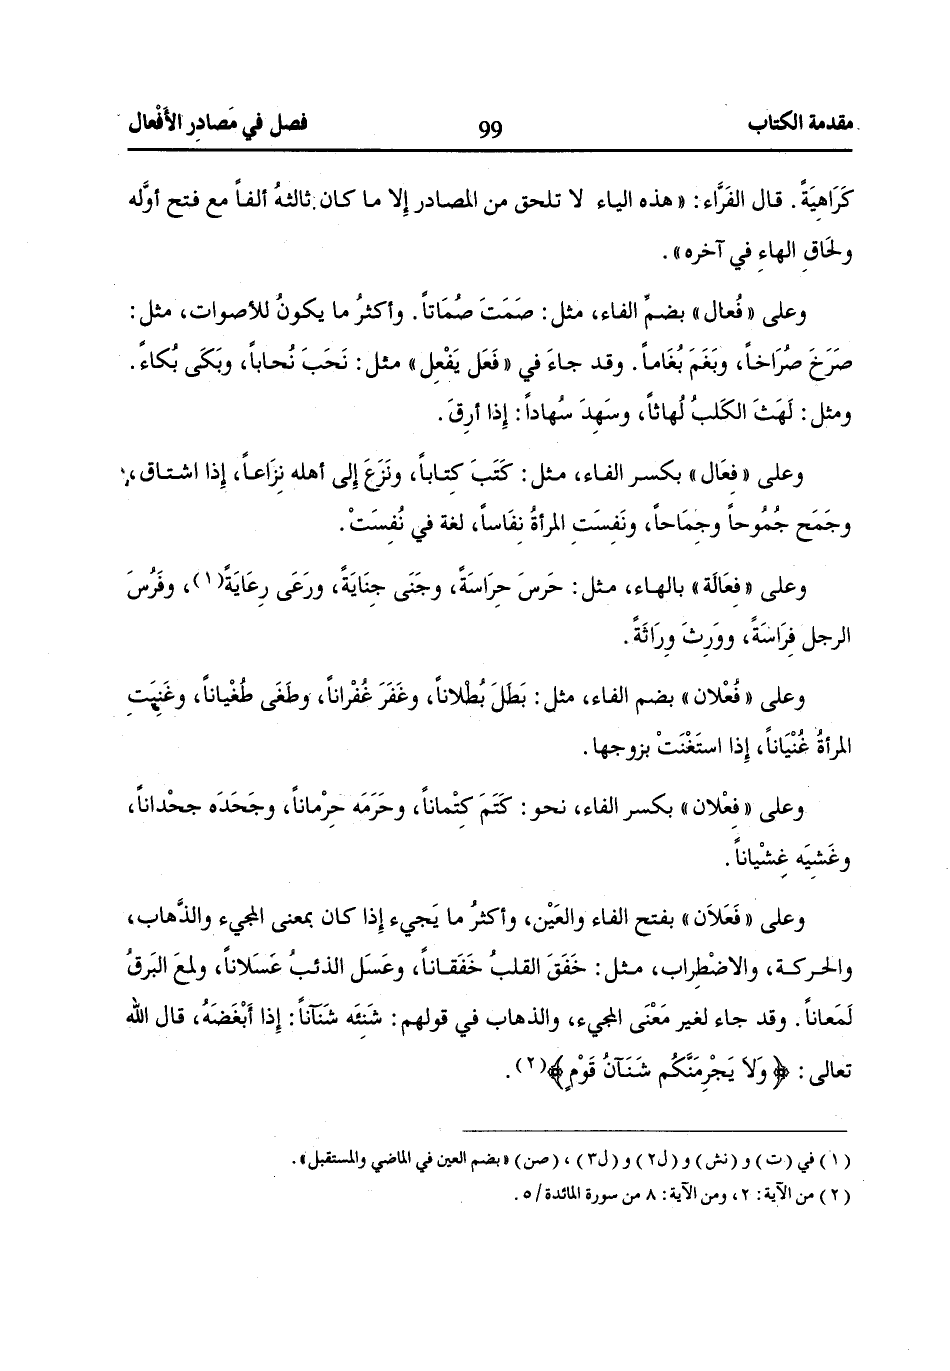 مقدمة الكتاب 99 فصل في مَصادرِ الأَفْعال
كَرَاهيَةً. قال الفَرَّاء: «هذه الياء لا تلحق من المصادر إلا ما كان ثالثهُ ألفاً مع فتح أوله
ولحَاقِ الهاءِ في آخره».
وعلى «فُعال» بضمِّ الفاء، مثل: صَمَتَ صُمَاتاً. وأكثرُ ما يكونُ للأصوات، مثل:
صَرَخَ صُرَاخاً، وبَغَمَ بُغَاماً. وقد جاءَ في «فَعَل يَفْعِل» مثل: نَحَبَ نُحاباً، وبَكَى بُكاءً.
ومثل: لَهَثَ الكَلبُ لُهاثاً، وسَهِدَ سُهاداً: إذا أرِقَ.
وعلى «فِعَال» بكسر الفاء، مثل: كَتَبَ كِتاباً، ونَزَعَ إلى أهله نِزَاعاً، إذا اشتاق،
وجَمَح جُمُوحاً وجِمَاحاً، ونَفِسَت المرأةُ نِفَاساً، لغة في نُفِسَتْ.
وعلى «فِعَالَة» بالهاء، مثل: حَرَسَ حِرَاسَةً، وجَنَى جِنَايَةً، ورَعَى رِعَايَةً(١)، وفَرُسَ
الرجل فِرَاسَةً، ووَرِثَ وِرَاثَةً.
وعلى «فُعْلان» بضم الفاء، مثل: بَطَلَ بُطْلاناً، وغَفَرَ غُفْراناً، وطَغَى طُغْياناً، وغَنِيَتِ
المرأةُ غُنْيَاناً، إذا استَغْنَتْ بزوجها.
وعلى «فِعْلان» بكسر الفاء، نحو: كَتَمَ كِتْماناً، وحَرَمَه حِرْماناً، وجَحَدَه جحْداناً،
وغَشِيَه غِشْياناً.
وعلى «فَعَلاَن» بفتح الفاء والعَيْن، وأكثرُ ما يَجيء إذا كان بمعنى المجيء والذَّهاب،
والحركة، والاضْطِراب، مثل: خَفَقَ القلبُ خَفَقاناً، وعَسَل الذئبُ عَسَلاناً، ولمعَ البَرقُ
لَمَعاناً. وقد جاء لغير مَعْنَى المجيء، والذهاب في قولهم: شَنِئَه شَنَآناً: إذا أَبْغَضَهُ، قال الله
تعالى: ﴿وَلاَ يَجْرِمَنَّكُم شَنَآنُ قَوْمٍ﴾(٢).
(١) في (ت) و (نش) و (ل٢) و (ل٣)، (صن) «بضم العين في الماضي والمستقبل».
(٢) من الآية: ٢، ومن الآية: ٨ من سورة المائدة/٥.